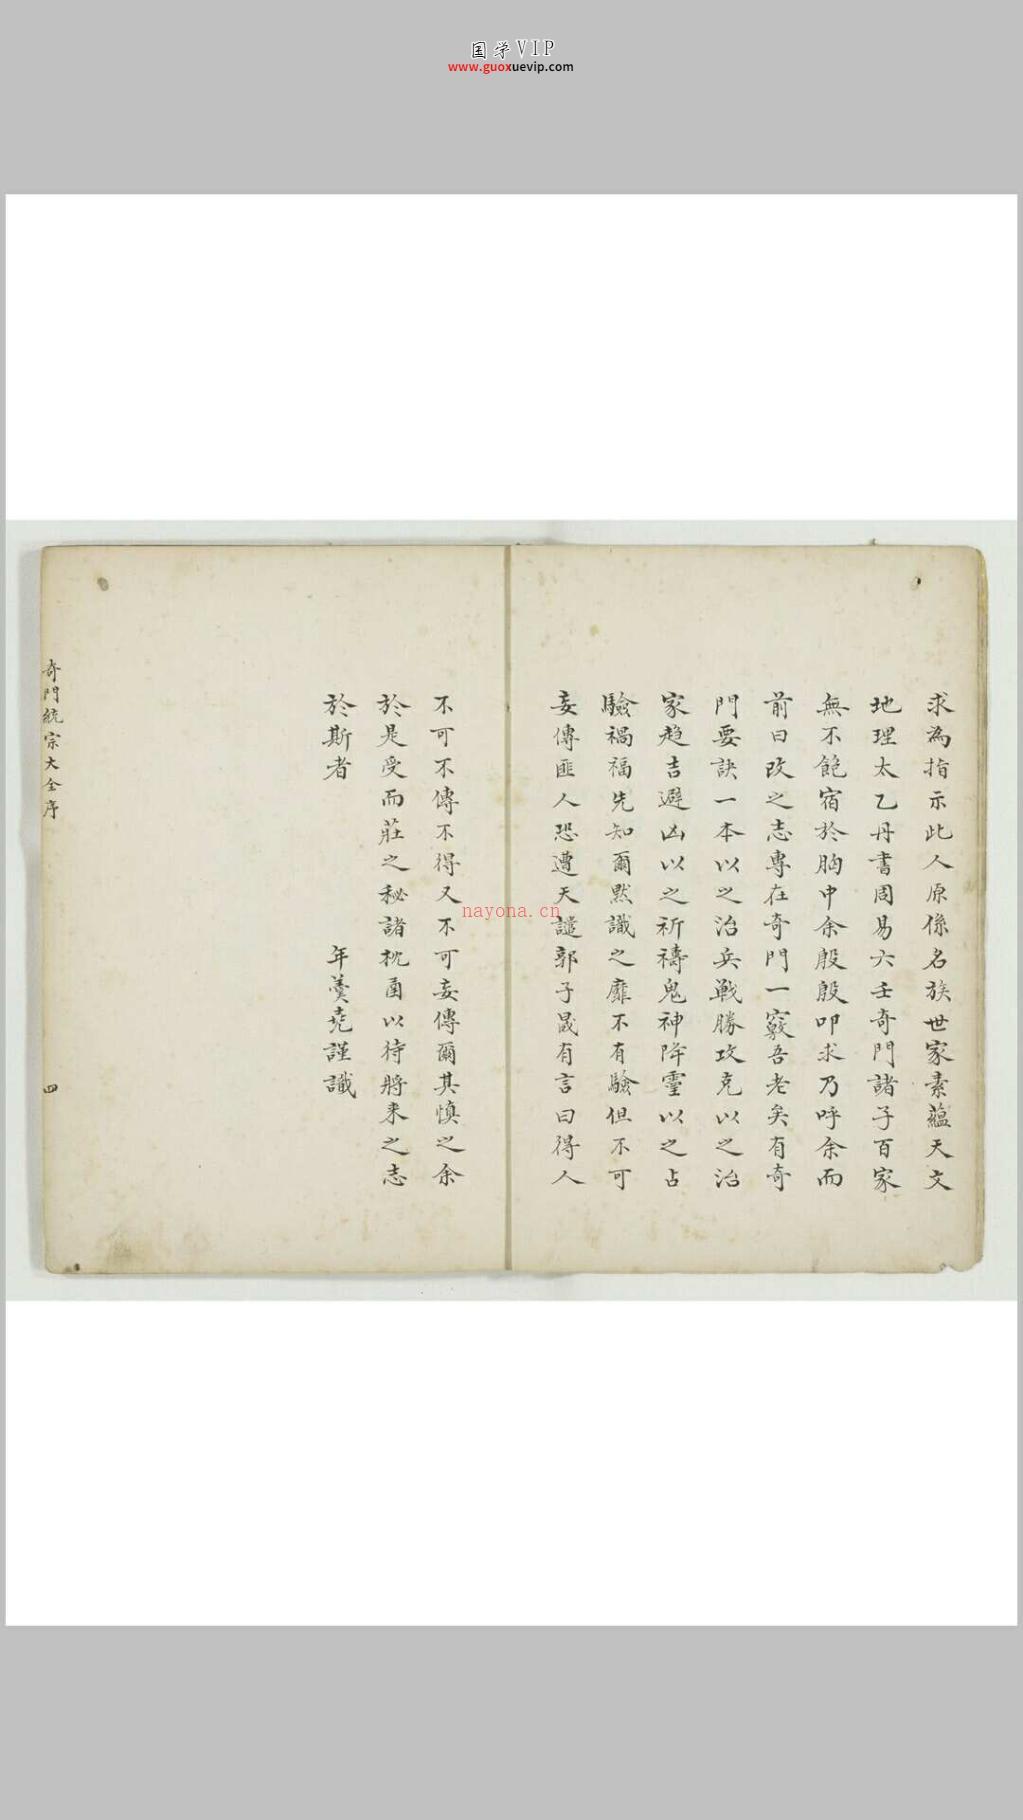 国学VIP
www.guoxuevip.com
求為指示此人原係名族世家素蘊天文
地理太乙丹書周易六壬奇門諸子百家
無不飽宿於胸中余殷殷叩求乃呼余而
前曰改之志專在奇門一竅吾老矣有奇
門要訣一本以之治兵戰勝攻克以之治
家趨吉避凶以之祈禱鬼神降靈以之占
驗禍福先知爾默識之靡不有驗但不可
妄傳匪人恐遭天譴郭子晟有言曰得人
不可不傳不得又不可妄傳爾其慎之余
於是受而莊之秘諸枕函以待將来之志
於斯者
年羹堯謹識
奇門統宗大全序
四
nayona.cn